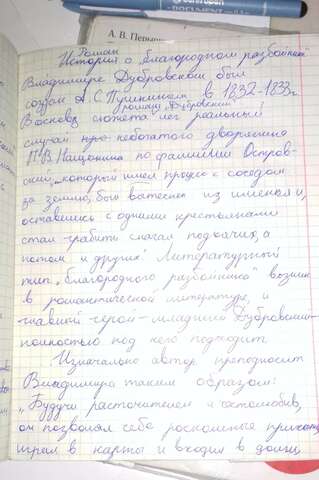 DOCUMENT
А. В. Перыш
Роман
История о „благородном разбойнике"
Владимире Дубровском был
создан А. С. Пушкиным в 1832-1833г.
романа „Дубровский"
В основу сюжета лег реальный
случай про небогатого дворянина
П. В. Нащокина по фамилии Остров-
ский, „который имел процесс с соседом
за землю, был вытеснен из именья и,
оставшись с одними крестьянами
стал грабить сначала подьячих, а
потом и других". Литературный
тип „благородного разбойника" возник
в романтической литературе, и
главный герой - младший Дубровский -
полностью под него подходит.
Изначально автор преподносит
Владимира таким образом:
„Будучи расточителен и честолюбив,
он позволял себе роскошные прихоти,
играл в карты и входил в долги,